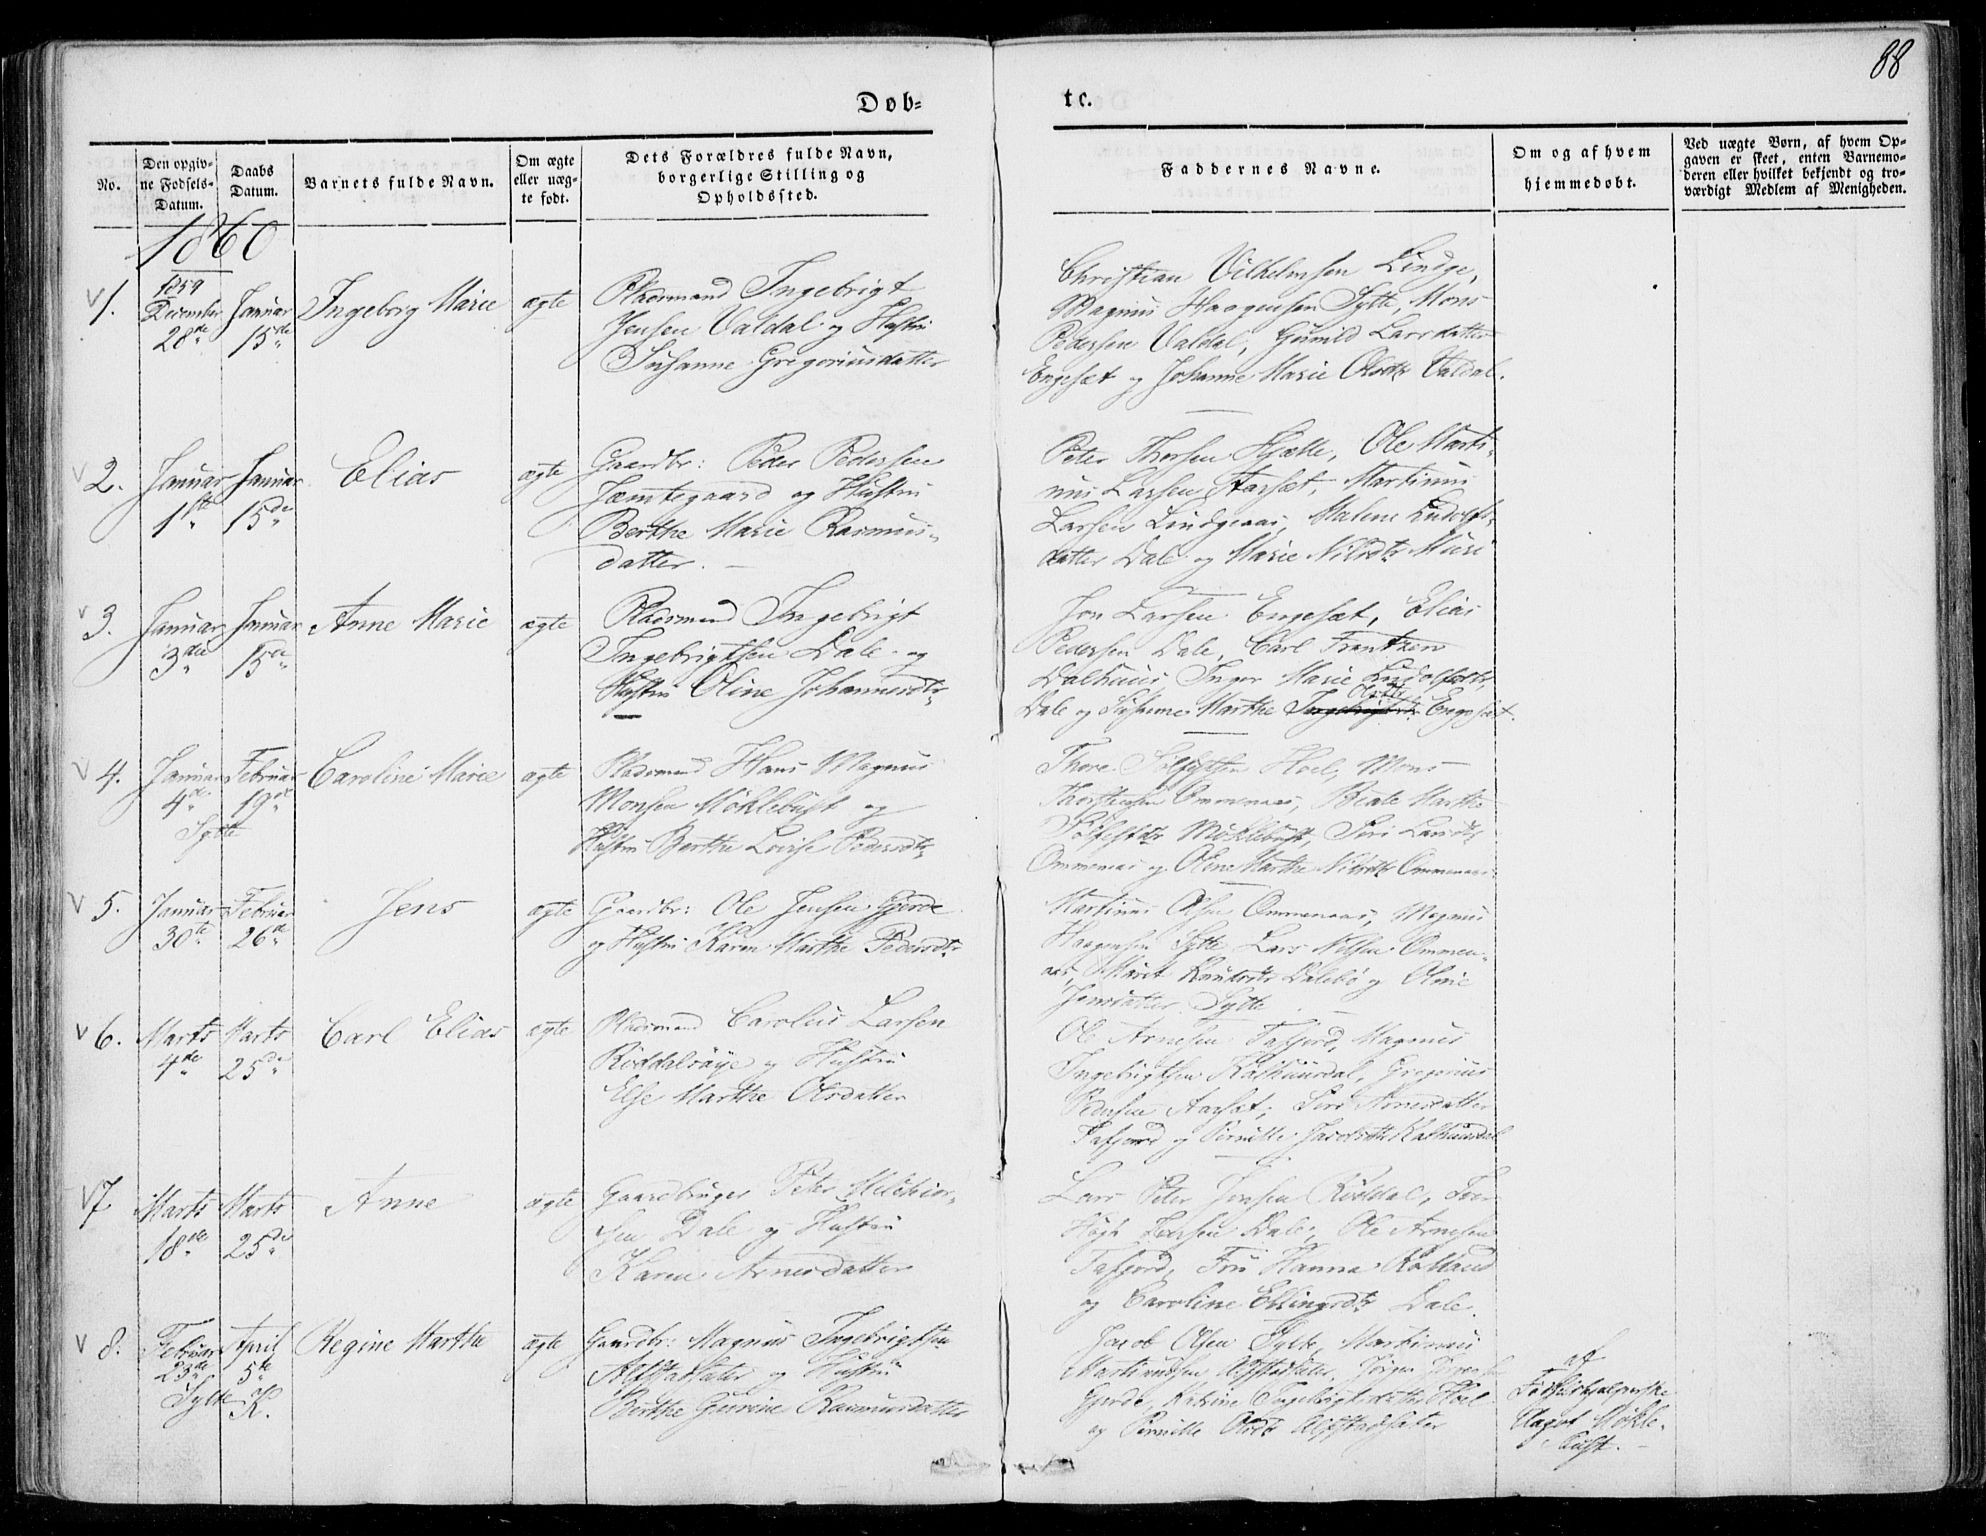 88
Døb-
te.
No.
Den opgiv-
ne Fødsels-
Datum.
Daabs
Datum.
Barnets fulde Navn.
Om ægte
eller uæg-
te født.
Dets Forældres fulde Navn,
borgerlige Stilling og
Opholdssted.
Faddernes Navne.
Om og af hvem
hjemmedøbt.
Ved uægte Børn, af hvem Op-
gaven er skeet, enten Barnemo-
deren eller hvilket bekjendt og tro-
værdigt Medlem af Menigheden.
1860
1.
1859
December
28de
Januar
15de
Ingeborg Marie
ægte
Pladsmand Ingebrigt
Jensen Valdal og Hustru
Susanne Gregoriusdatter
Christian Vilhelmsen Lindge,
Magnus Haagensen Sylte, Mons
Pedersen Valdal, Gunild Larsdatter
Engesæt og Johanne Marie Olsdtr Valdal.
2.
Januar
1ste
Januar
15de
Elias
ægte
Gaardbr: Peder Pedersen
Jamtegaard og Hustru
Berthe Marie Rasmus-
datter.
Peter Thorsen Hjelle, Ole Marti-
nus Larsen Aarsæt, Martinus
Larsen Lindgeaas, Malene Rudolfs-
datter Dale og Marie Nilsdtr Muri
3.
Januar
3die
Januar
15de
Anne Marie
ægte
Pladsmand Ingebrigt
Ingebrigtsen Dale og
Hustru Oline Johannesdtr
Jon Larsen Engesæt, Elias
Pedersen Dale, Carl Frantzen
Dalhuus, Inger Marie Rudolfsdtr
Dale og Susanne Marthe Olsdtr Engesæt.
4.
Januar
4de
Sylte
Februar
19de
Caroline Marie
ægte
Pladsmand Hans Magnus
Monsen Møklebust og
Hustru Berthe Lovise Pedersdtr
Thore Hoel, Mons
Thorstensen Ommenaas, Beate Marthe
Møklebust, Siri Larsdtr
Ommenaas og Oline Marthe Nilsdtr Ommenaas
5.
Januar
30te
Februar
26de
Jens
ægte
Gaardbr: Ole Jensen Gjerde
og Hustru Karen Marthe Pedersdtr
Martinus Olsen Ommenaas, Magnus
Haagensen Sylte Lars Nilsen Ommen-
aas, Marit Knudsdtr Dalebø og Oline
Jensdatter Sylte.
6.
Marts
4de
Marts
25de
Carl Elias
ægte
Pladsmand Carolus Larsen
Røddalsøye og Hustru
Else Marthe Olsdatter
Ole Arnesen Tafjord, Magnus
Ingebrigtsen Kalhuusdal, Gregorius
Pedersen Aarsæt, Siri Arnesdatter
Tafjord og Pernille Jacobsdtr Kalhuusdal
7
Marts
18de
Marts
25de
Anne
ægte
Gaardbruger Peter Melchior-
sen Dale og Hustru
Karen Arnesdatter
Lars Peter Jensen Røddal, Iver
Høgh Larsen Dale, Ole Arnesen
Tafjord, Fru Hanna Rølland
og Caroline Ellingsdtr Dale.
8.
Februar
23de
Sylte
April
5te
K.
Regine Marthe
ægte
Gaardbr: Magnus Ingebrigtsen
Alfstadsæter og Hustru
Berthe Gurine Rasmusdatter
Jacob Olsen Sylte, Martinus
Martinussen Alfstadsæter, Jørgen Jørgensen
Gjerde, Katrine Ingebrigtsdatter Hoel
og Pernille Olsdtr Alfstadsæter
af
Fødselshjælperske
Aagot Møkle-
bust.